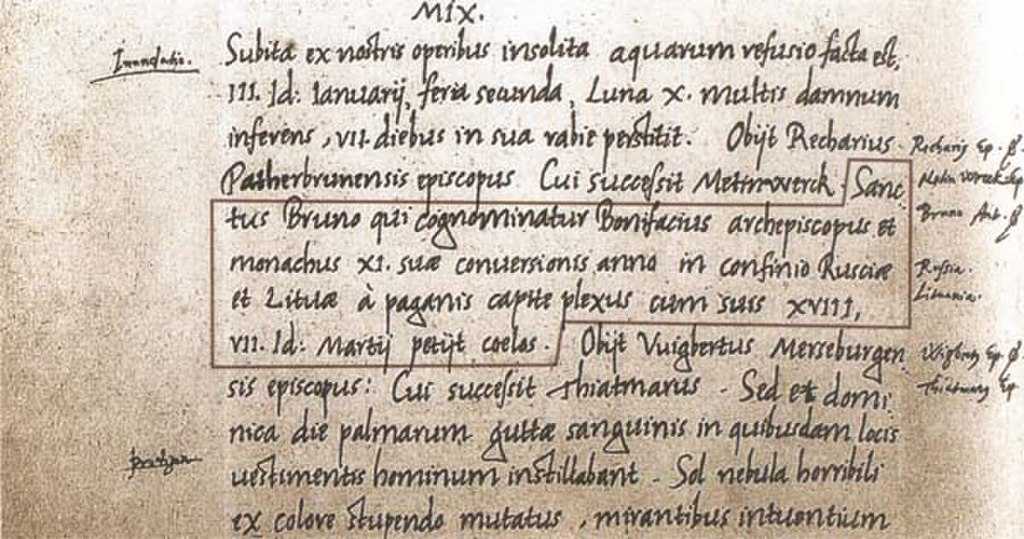 MIX.
Inundatio.
Subita ex nostris operibus insolita aquarum refusio facta est,
III. Id: Ianuarij, feria secunda, Luna X. multis damnum
inferens, VII. diebus in sua rabie perstitit. Obijt Recharius
Patherbrunensis episcopus Cui successit Metinwerck. Sanc
tus Bruno qui cognominatur Bonifacius archepiscopus et
monachus XI. suæ conuersionis anno in confinio Rusciæ
et Lituæ à paganis capite plexus cum suis XVIII,
VII. Id: Martij petijt coelos. Obijt Vuigbertus Merseburgen
sis episcopus: Cui successit Thiatmarus. Sed et domi
nica die palmarum guttæ sanguinis in quibusdam locis
uestimentis hominum instillabant. Sol nebula horribili
ex colore stupendo mutatus, mirantibus intuentium
Ep.
Ep
Bruno
Russia.
Lituania.
Ep.
Ep